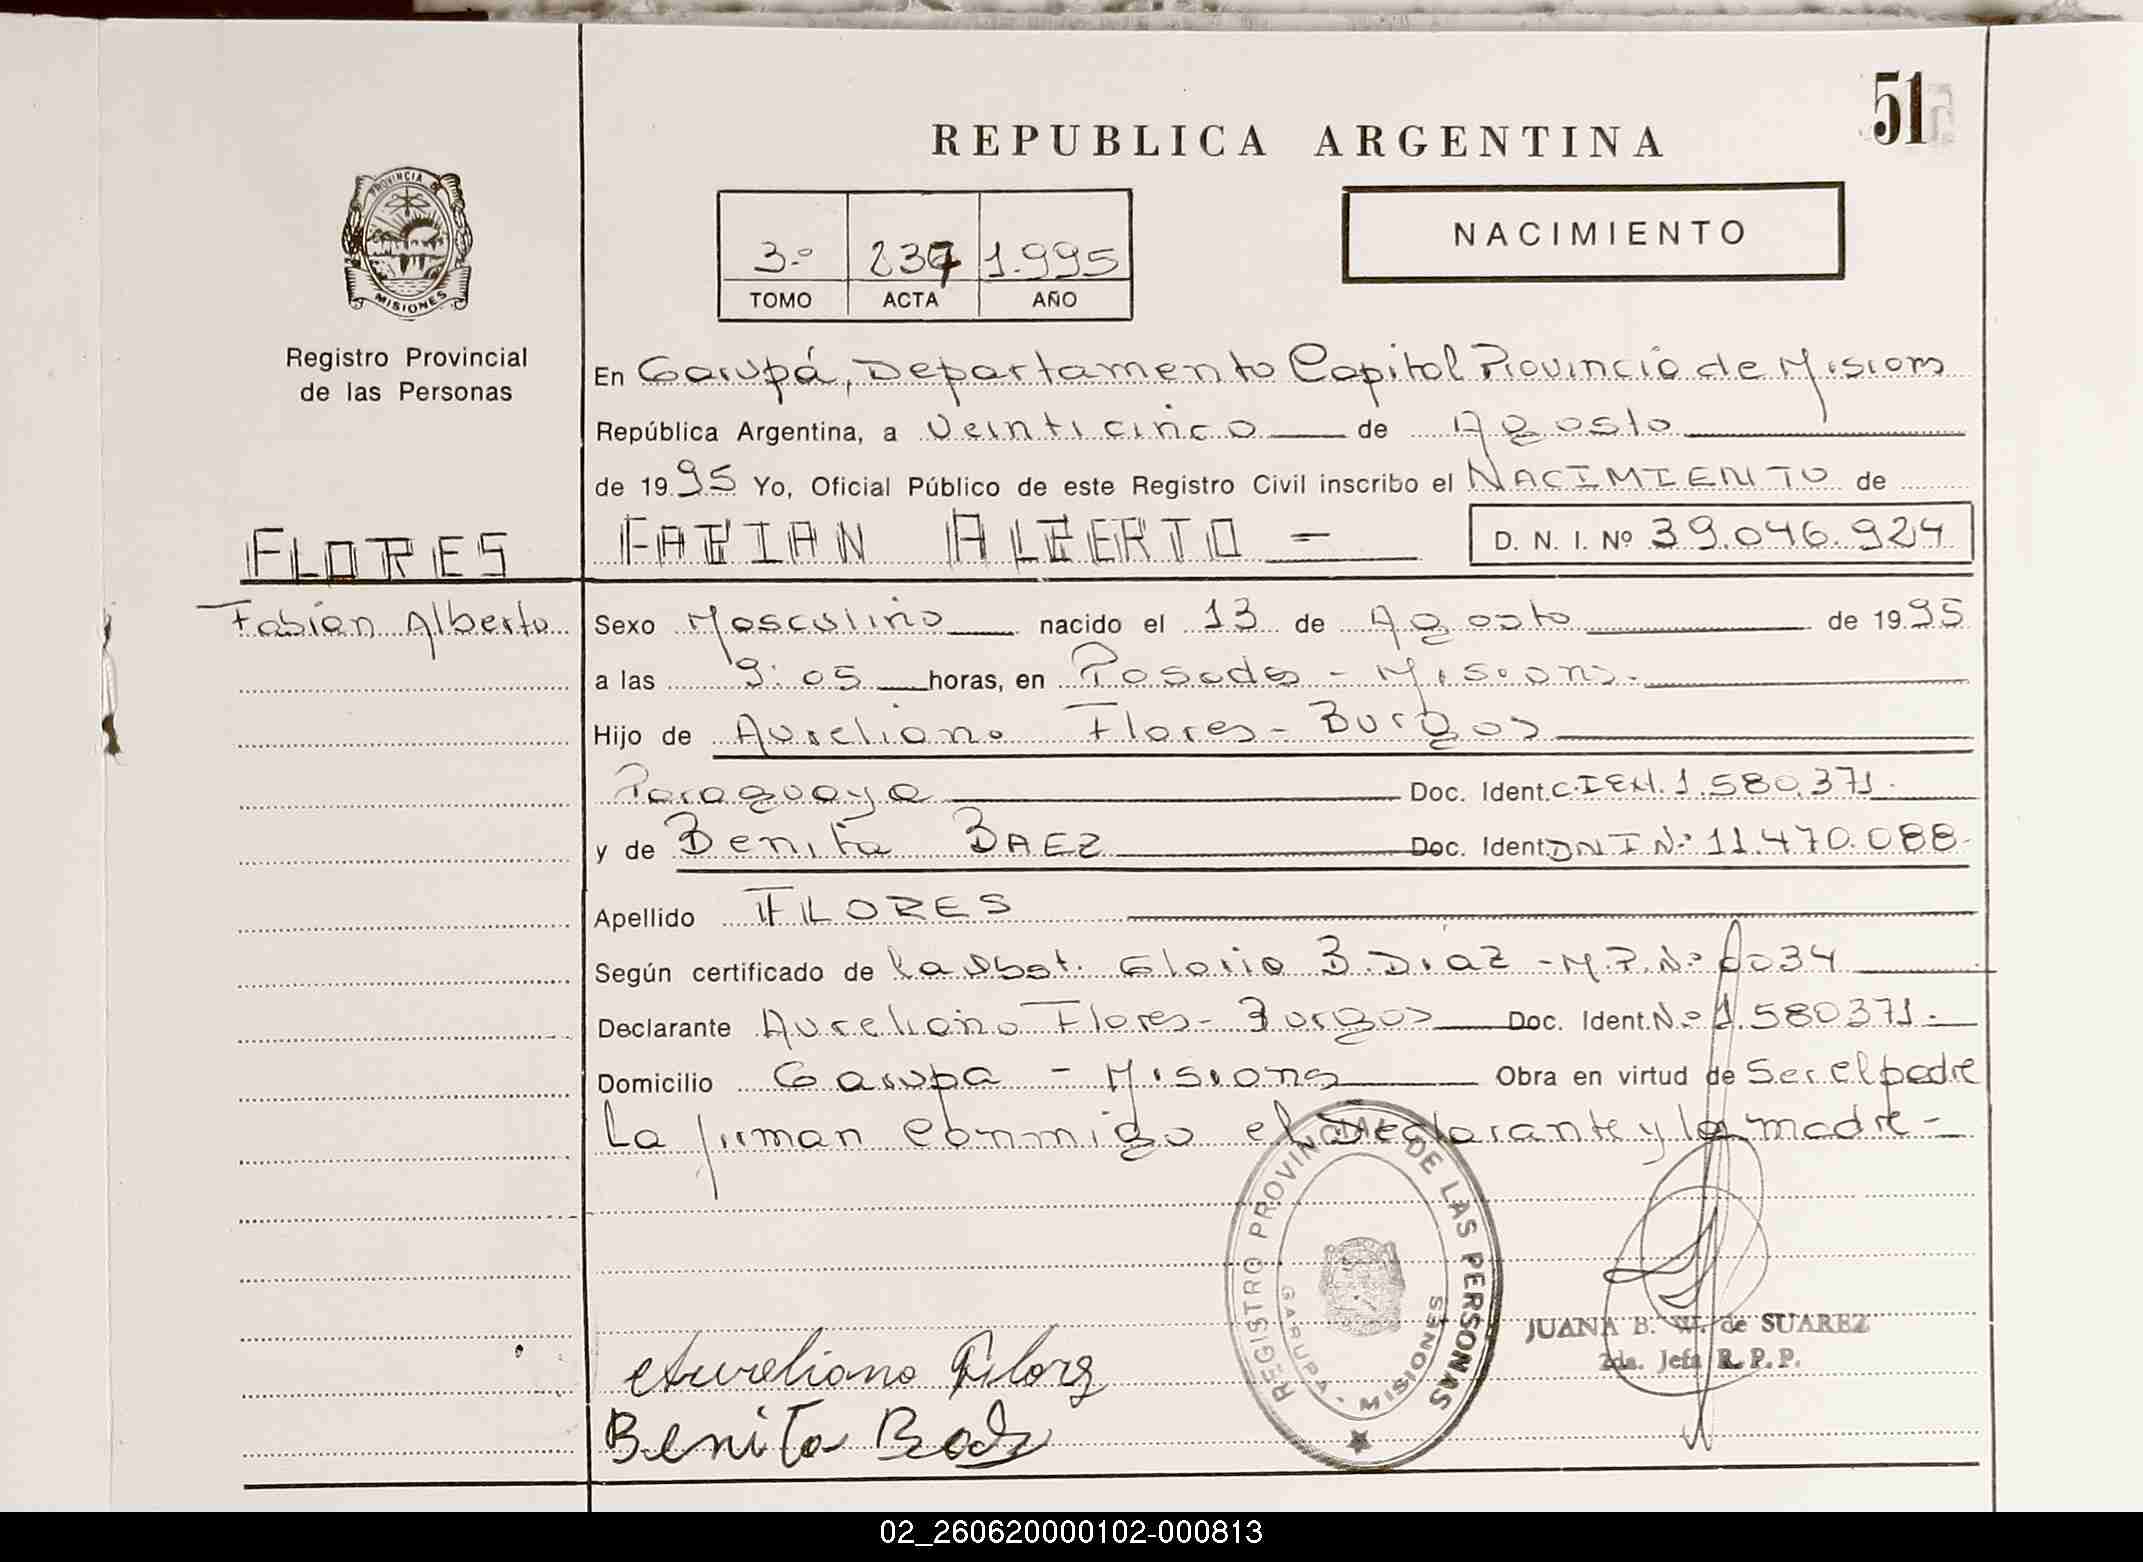 51
REPUBLICA ARGENTINA
PROVINCIA DE
MISIONES
NACIMIENTO
3.º 237 1.995
TOMO ACTA AÑO
Registro Provincial
de las Personas
En Garupá, Departamento Capital Provincia de Misiones
República Argentina, a Veinticinco de Agosto
de 1995 Yo, Oficial Público de este Registro Civil inscribo el NACIMIENTO de
FLORES FABIAN ALBERTO - D. N. I. Nº 39.046.924
Fabian Alberto
Sexo Masculino nacido el 13 de Agosto de 1995
a las 9:05 horas, en Posadas - Misiones.
Hijo de Aureliano Flores - Burgos
Paraguaya Doc. Ident. C.I.EXt. 1.580.371.
y de Benita BAEZ Doc. Ident. DNI Nº 11.470.088-
Apellido FLORES
Según certificado de la Obst. Gloria B. Díaz - M.P. Nº 0034
Declarante Aureliano Flores - Burgos Doc. Ident. Nº 1.580371.
Domicilio Garupa - Misiones Obra en virtud de Ser el padre
La firman conmigo el Declarante y la madre -
REGISTRO PROVINCIAL DE LAS PERSONAS
GARUPA - MISIONES
JUANA B. W. de SUAREZ
2da. Jefa R. P. P.
Aureliano Flores
Benita Baez
02_260620000102-000813